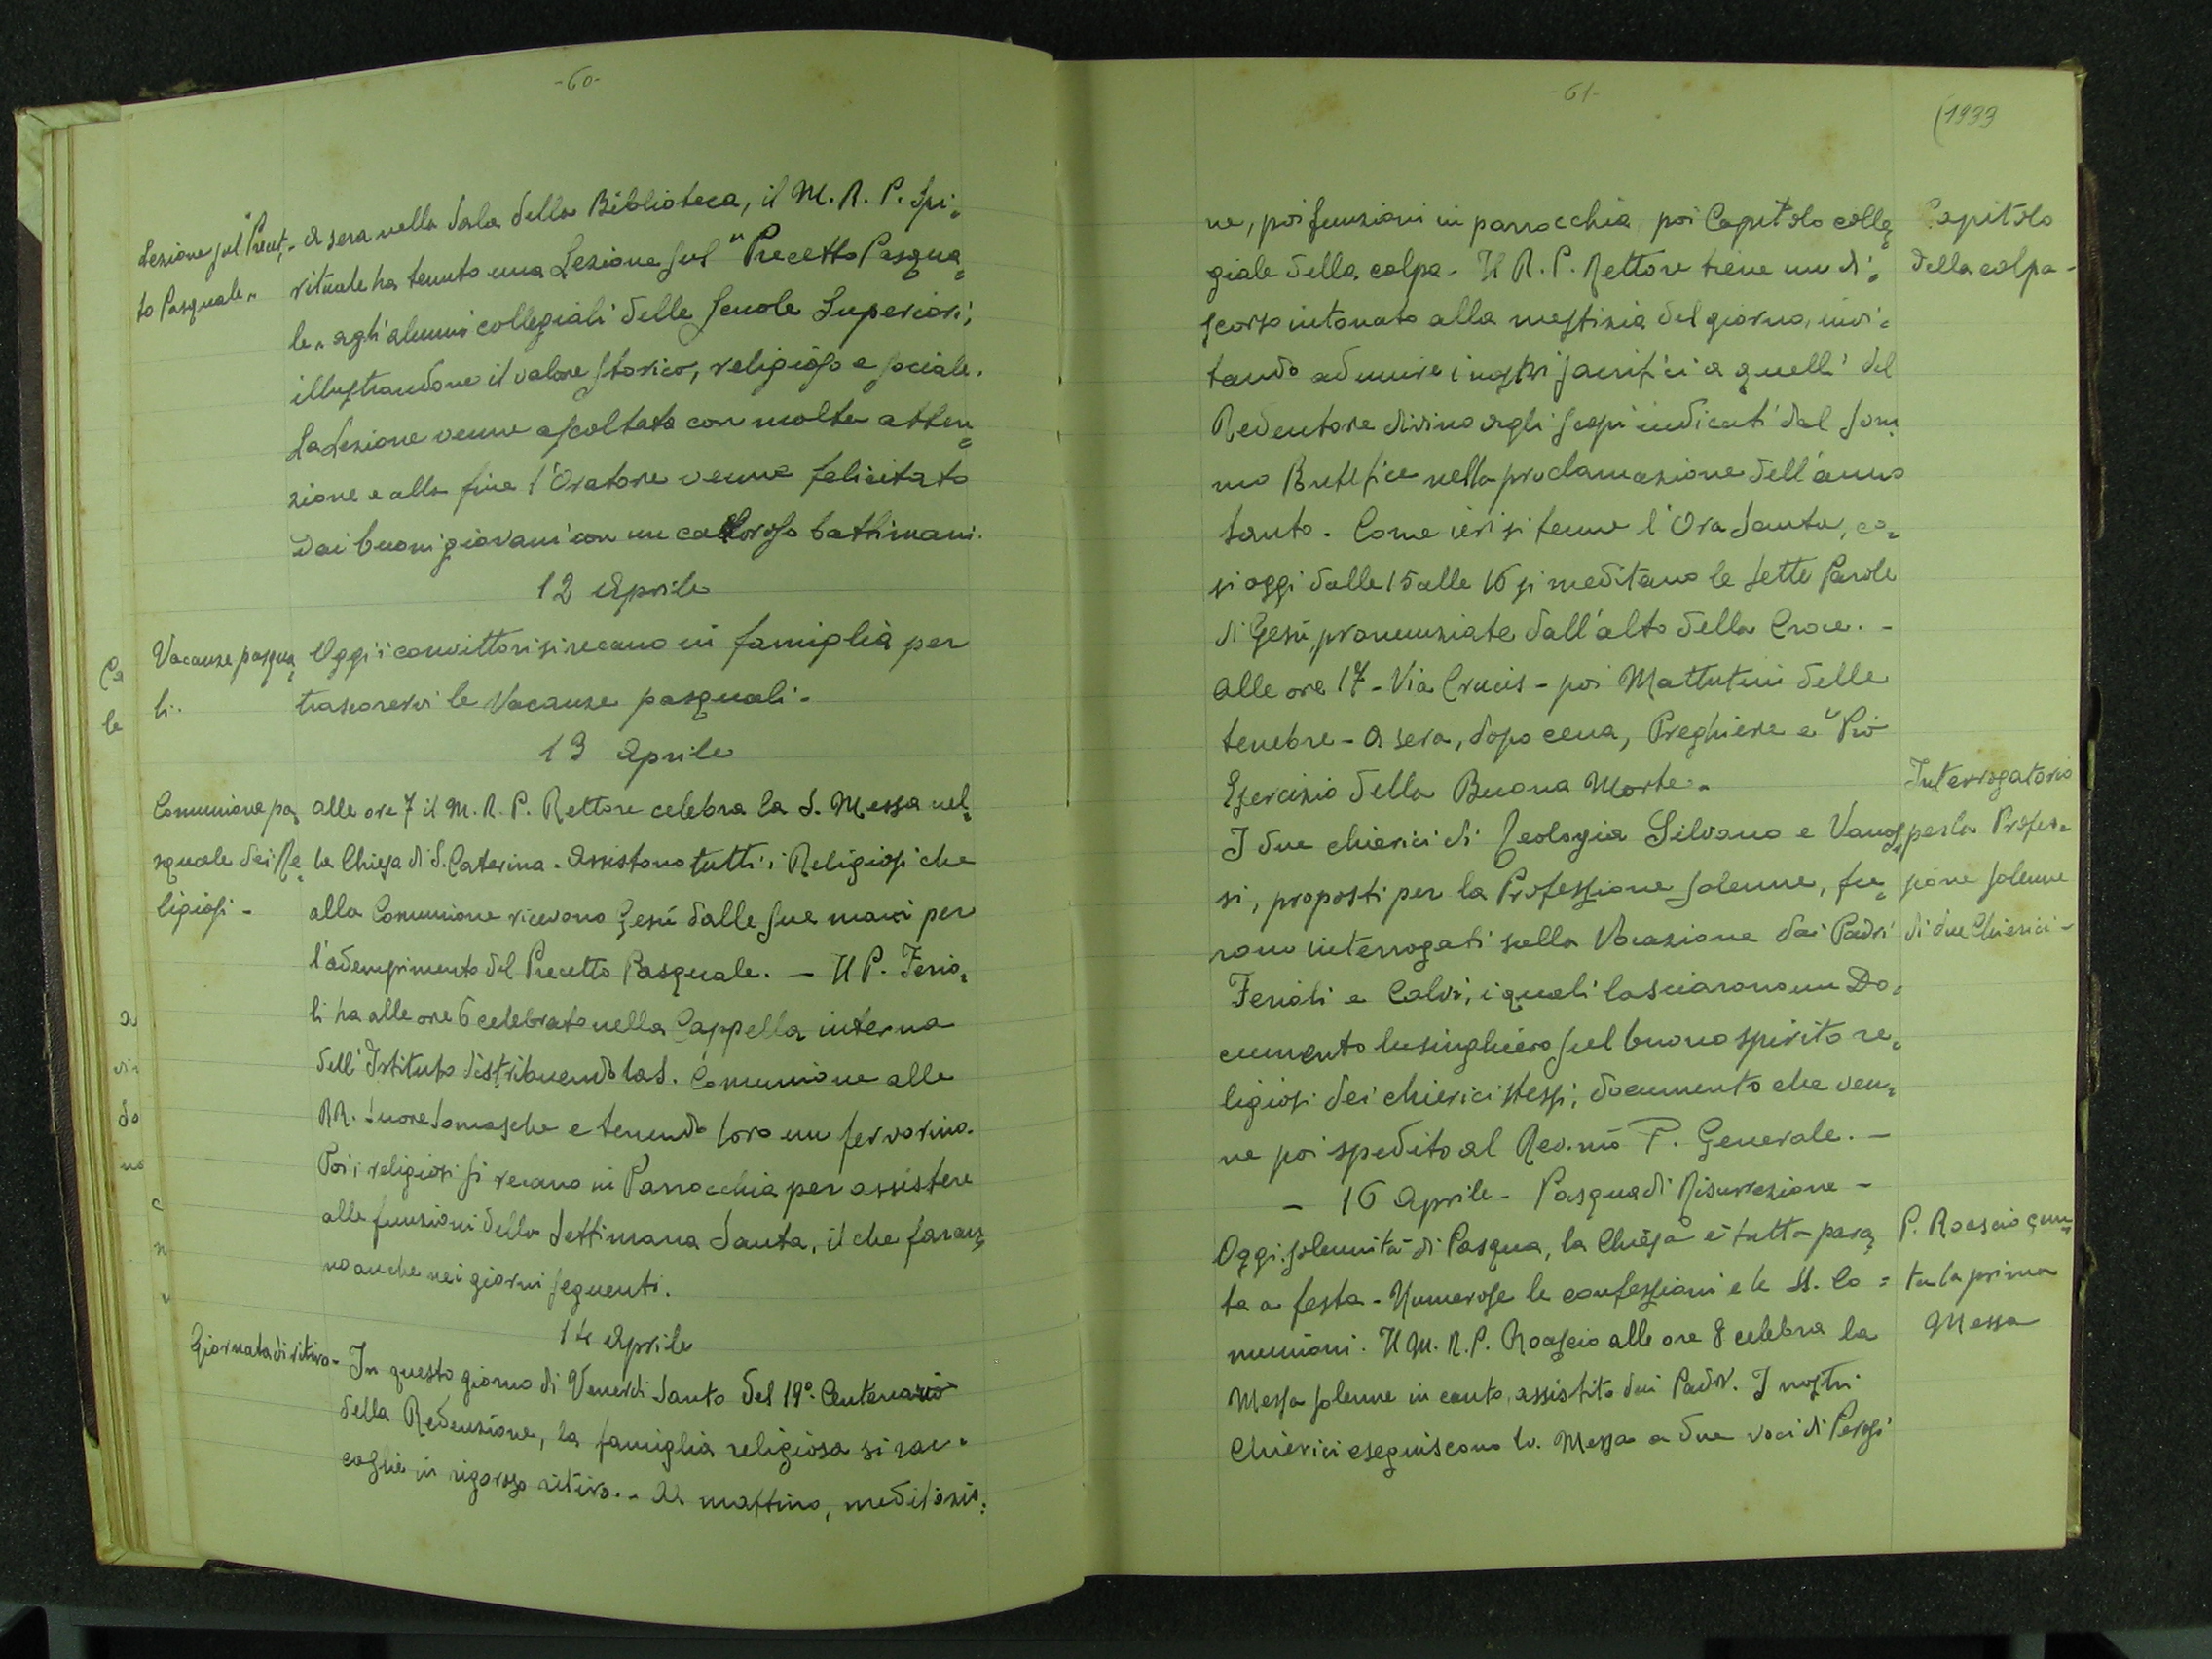 -60-
Lezione sul "Precet-
to Pasquale„
A sera nella Sala della Biblioteca, il M. R. P. Spi=
rituale ha tenuto una Lezione sul "Precetto Pasqua=
le„ agli alunni collegiali delle Scuole Superiori,
illustrandone il valore storico, religioso e sociale.
La Lezione venne ascoltata con molta atten=
zione e alla fine l'Oratore venne felicitato
dai buoni giovani con un caloroso battimani.
12 Aprile
Vacanze pasqua=
li.
Oggi i convittori si recano in famiglia per
trascorrervi le Vacanze pasquali.
13 Aprile
Comunione pa=
squale dei Re=
ligiosi -
Alle ore 7 il M. R. P. Rettore celebra la S. Messa nel=
la Chiesa di S. Caterina. Assistono tutti i Religiosi che
alla Comunione ricevono Gesù dalle sue mani per
l'adempimento del Precetto Pasquale. - Il P. Ferio=
li ha alle ore 6 celebrato nella Cappella interna
dell'Istituto distribuendo la S. Comunione alle
RR. Suore Somasche e tenendo loro un fervorino.
Poi i religiosi si recano in Parrocchia per assistere
alle funzioni della Settimana Santa, il che faran=
no anche nei giorni seguenti.
14 Aprile
Giornata di ritiro-
In questo giorno di Venerdì Santo del 19º Centenario
della Redenzione, la famiglia religiosa si rac=
coglie in rigoroso ritiro. - Al mattino, meditazio=
-61-
(1933
ne, poi funzioni in parrocchia, poi Capitolo colle=
giale della colpa - Il R. P. Rettore tiene un di=
scorso intonato alla mestizia del giorno, invi=
tando ad unire i nostri sacrifici a quelli del
Redentore divino agli scopi indicati dal Som=
mo Pontefice nella proclamazione dell'anno
Santo. Come ieri si tenne l'Ora Santa, co=
sì oggi dalle 15 alle 16 si meditano le Sette Parole
di Gesù, pronunziate dall'alto della Croce. -
Alle ore 17 - Via Crucis - poi Mattutini delle
tenebre - A sera, dopo cena, Preghiere e "Pio
Esercizio della Buona Morte.
Capitolo
della colpa -
I due chierici di Teologia Silvano e Vanos=
si, proposti per la Professione solenne, fu=
rono interrogati sulla Vocazione dai Padri
Ferioli e Calvi, i quali lasciarono un Do=
cumento lusinghiero sul buono spirito re=
ligioso dei chierici stessi; documento che ven=
ne poi spedito al Rev.mo P. Generale. -
Interrogatorio
per la Profes=
sione solenne
di due Chierici -
- 16 Aprile - Pasqua di Risurrezione -
Oggi solennità di Pasqua, la Chiesa è tutta para=
ta a festa - Numerose le confessioni e le SS. Co=
munioni. Il M. R. P. Roascio alle ore 8 celebra la
Messa solenne in canto, assistito dai Padri. I nostri
Chierici eseguiscono la Messa a due voci di Perosi
P. Roascio can=
ta la prima
Messa